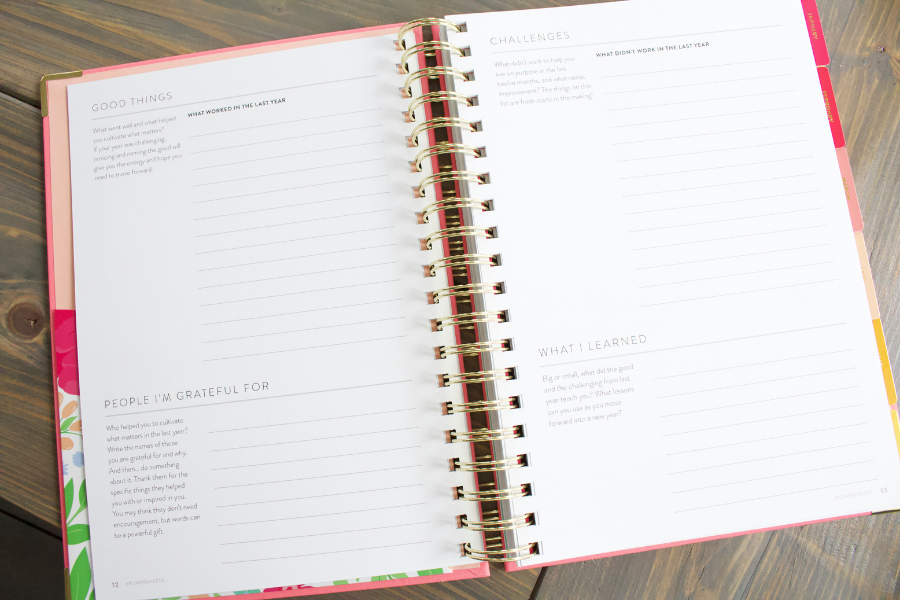 GOOD THINGS
What went well and what helped
you cultivate what matters?
If your year was challenging,
noticing and naming the good will
give you the energy and hope you
need to move forward.
WHAT WORKED IN THE LAST YEAR
PEOPLE I'M GRATEFUL FOR
Who helped you to cultivate
what matters in the last year?
Write the names of those
you are grateful for and why.
And then... do something
about it. Thank them for the
specific things they helped
you with or inspired in you.
You may think they don't need
encouragement, but words can
be a powerful gift.
12 POWERSHEETS
CHALLENGES
What didn't work to help you
live on purpose in the last
twelve months, and what needs
improvement? The things on this
list are fresh starts in the making!
WHAT DIDN'T WORK IN THE LAST YEAR
WHAT I LEARNED
Big or small, what did the good
and the challenging from last
year teach you? What lessons
can you use as you move
forward into a new year?
POWERSHEETS 13